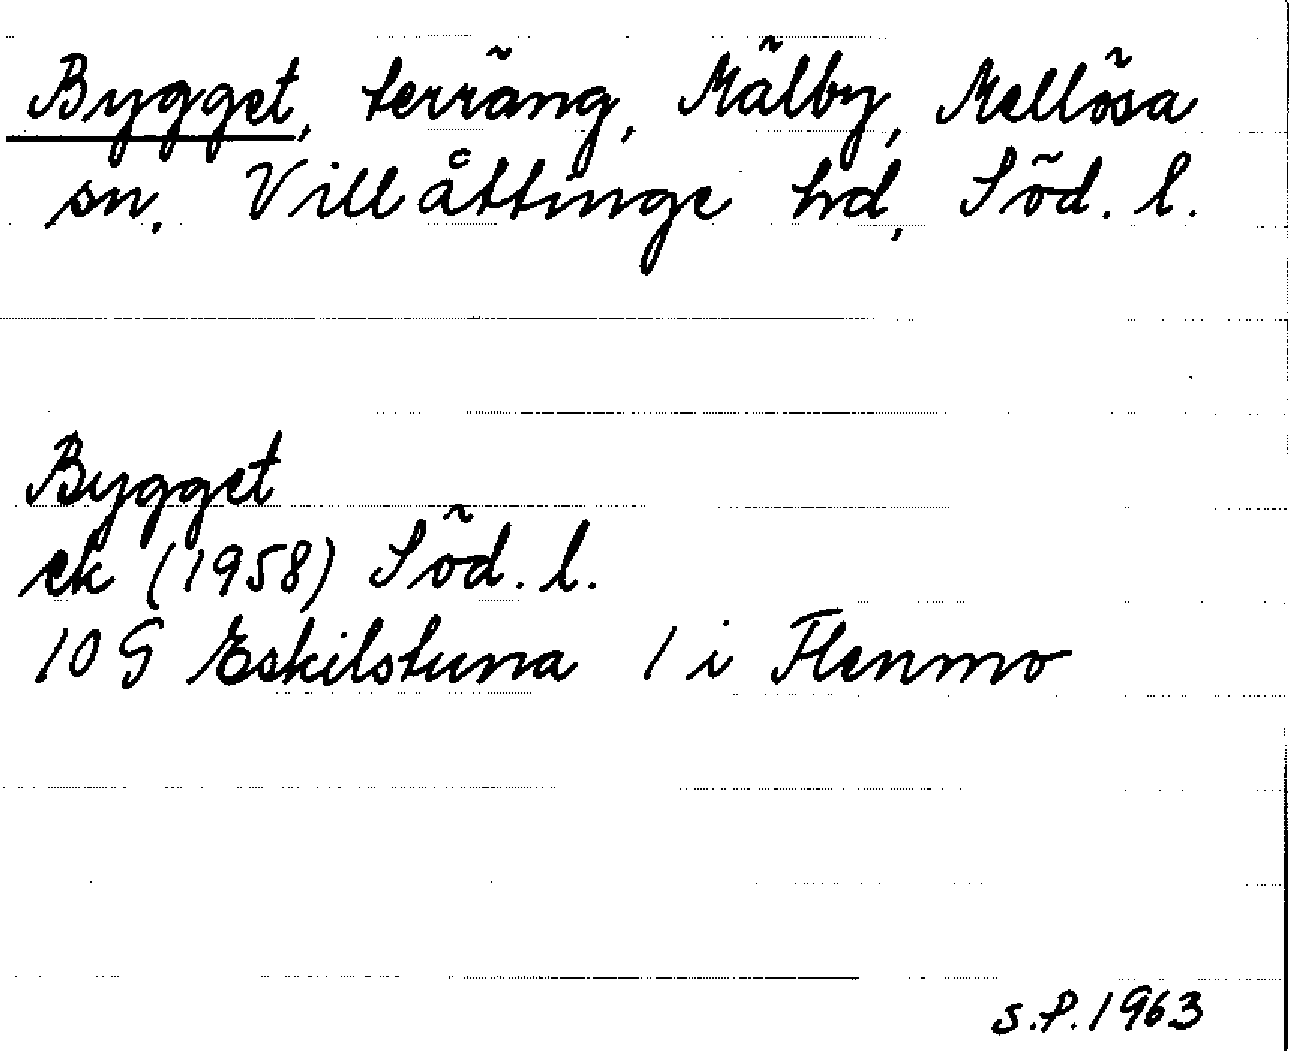 Bygget, terräng, Mälby, Mellösa
sn. Villåttinge hd, Söd. l.
Bygget
ek (1958) Söd. l.
10 G Eskilstuna 1 i Flenmo
S.P. 1963